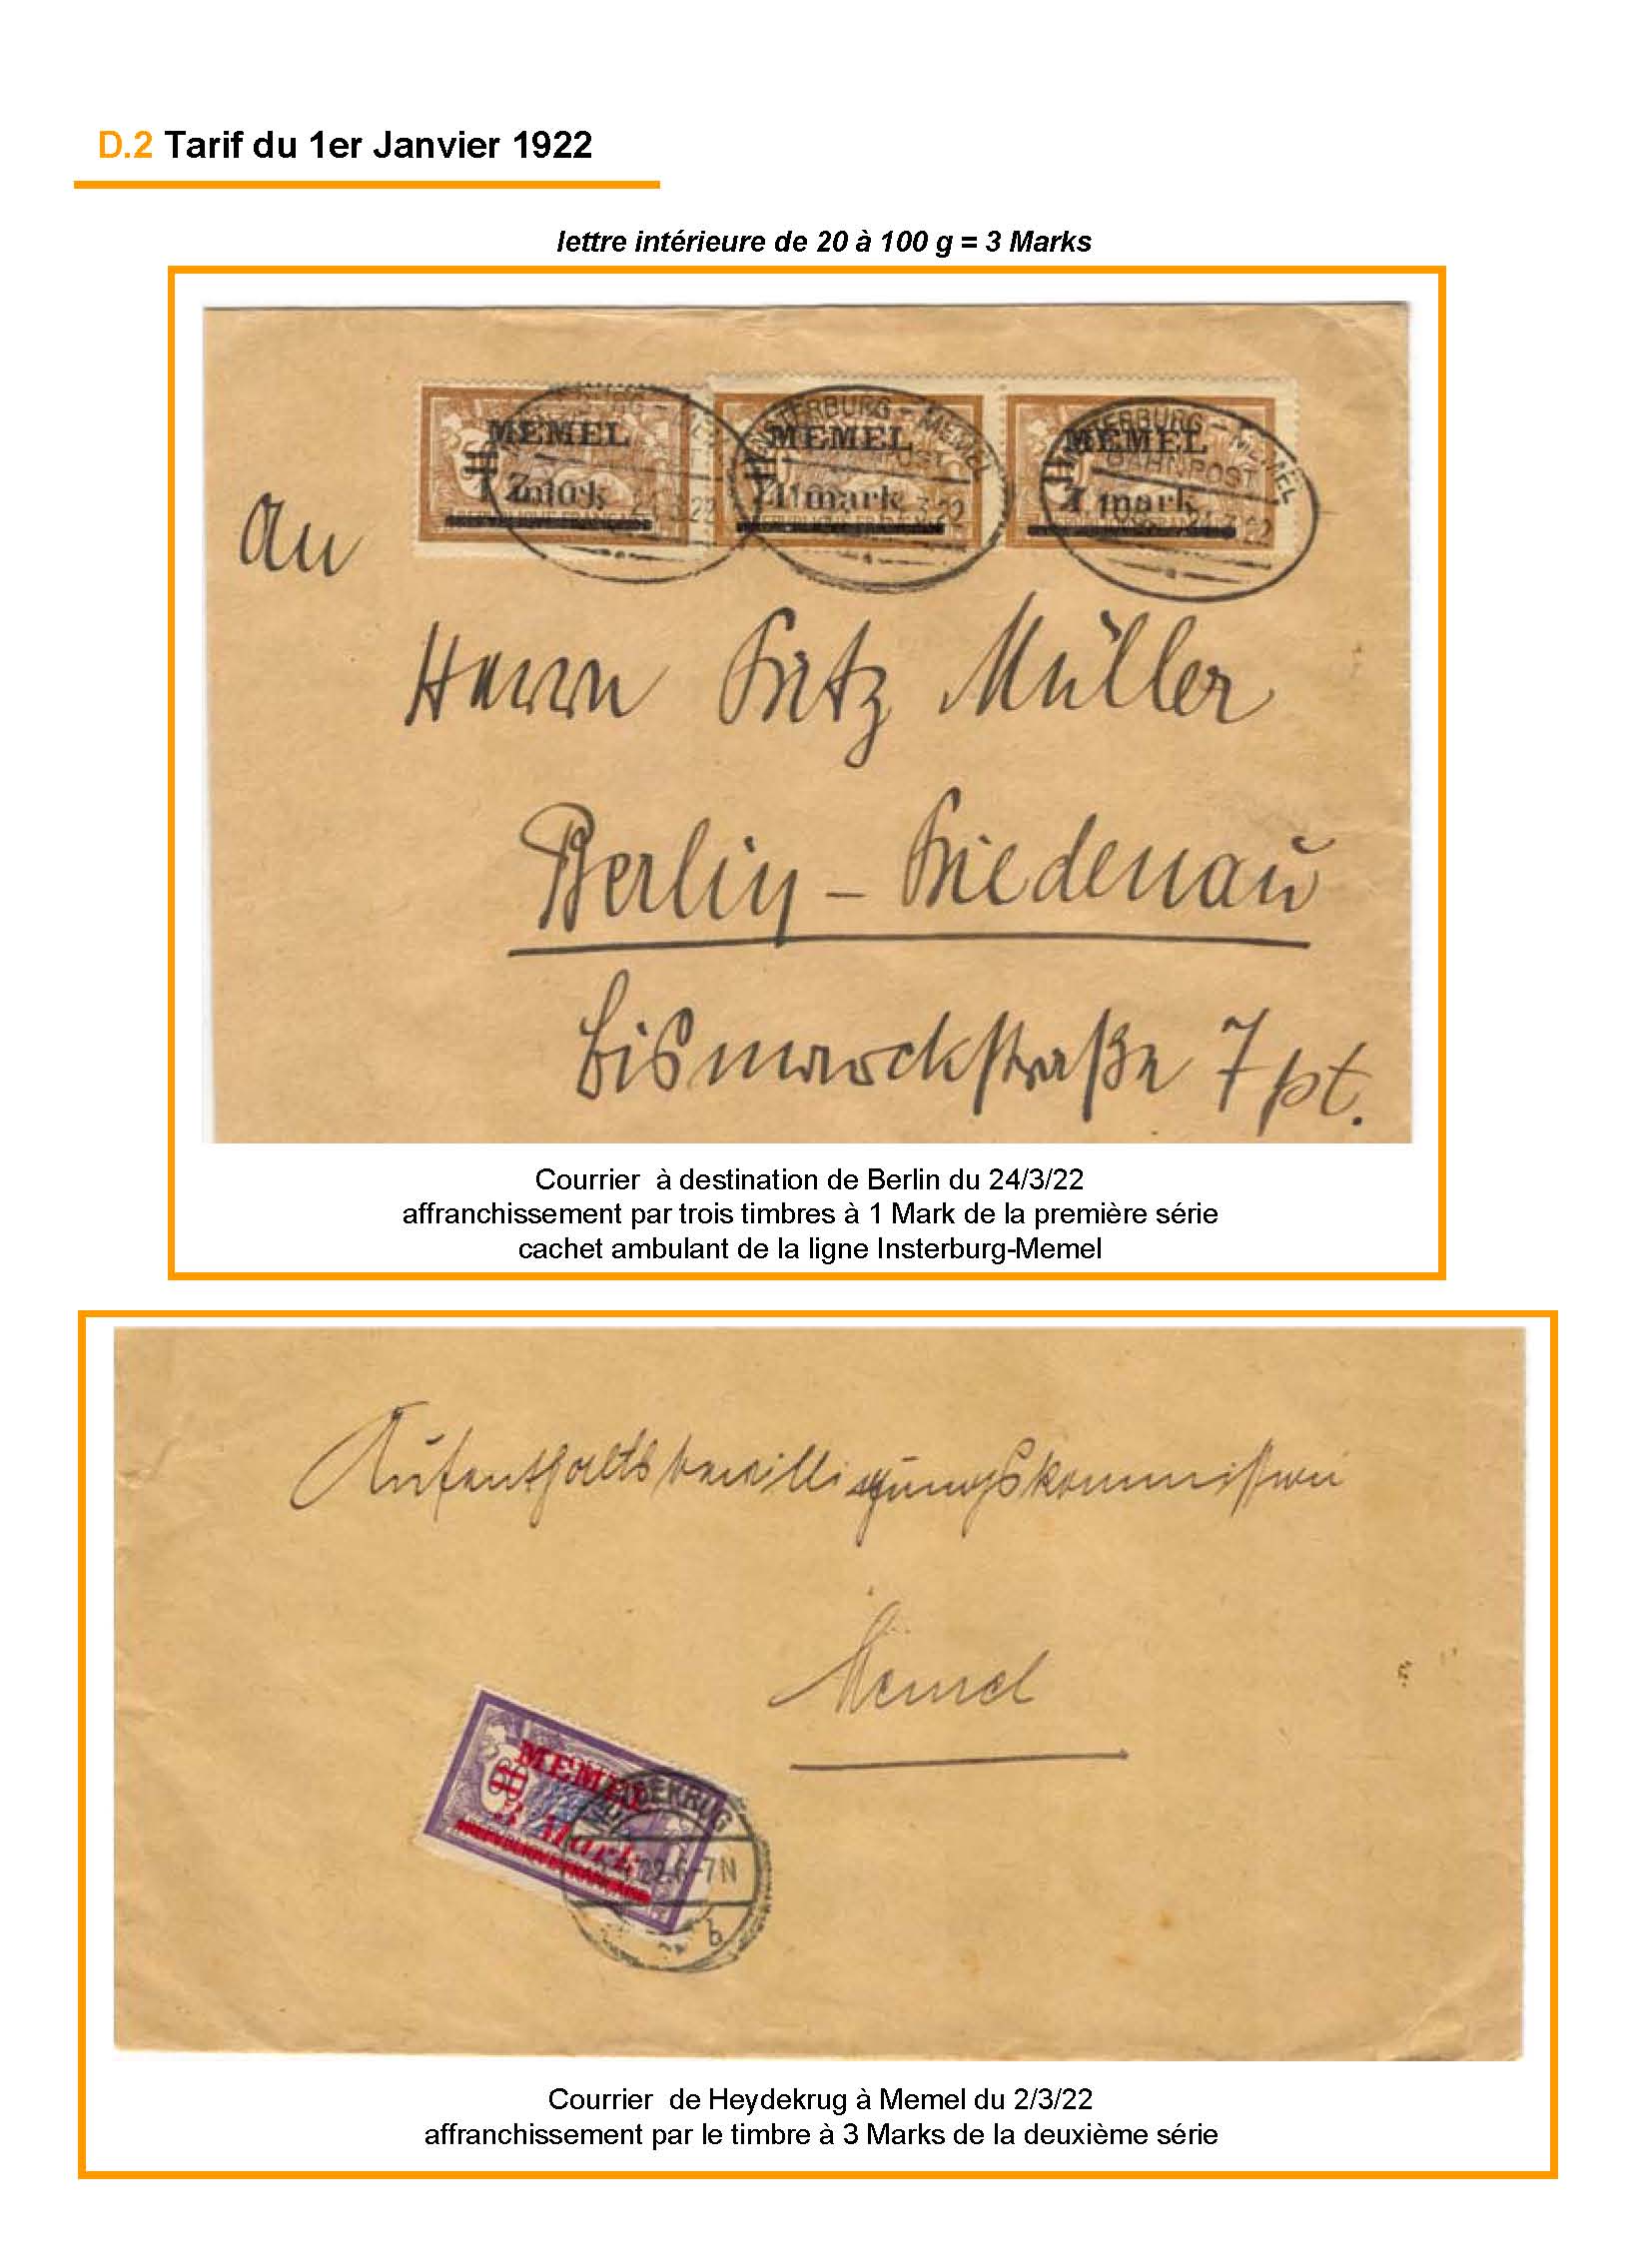 D.2 Tarif du 1er Janvier 1922
lettre intérieure de 20 à 100 g = 3 Marks
MEMEL MEMEL MEMEL
1 mark 1 mark 1 mark
INSTERBURG - MEMEL
BAHNPOST
An
Herrn Fritz Müller
Berlin - Friedenau
Bismarckstraße 7 pt.
Courrier à destination de Berlin du 24/3/22
affranchissement par trois timbres à 1 Mark de la première série
cachet ambulant de la ligne Insterburg-Memel
Aufenthaltsbewilligungskommission
Memel
MEMEL
3 Mark
22.6-7N
b
Courrier de Heydekrug à Memel du 2/3/22
affranchissement par le timbre à 3 Marks de la deuxième série